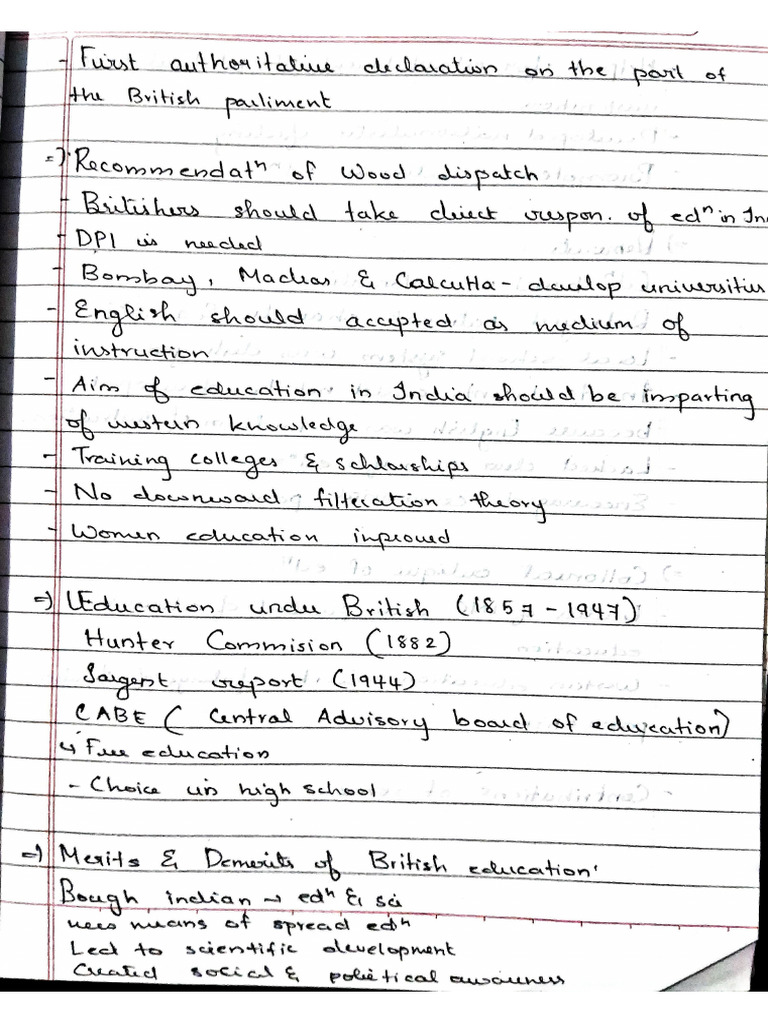 - First authoritative declaration on the part of
the British parliment
=) Recommendatⁿ of Wood dispatch
- Britishers should take direct respon. of edⁿ in In
- DPI is needed
- Bombay, Madras & Calcutta - develop universities
- English should accepted as medium of
instruction
- Aim of education in India should be imparting
of western knowledge
- Training colleges & schlarships
- No downward filteration theory
- Women education improved
=) Education under British (1857 - 1947)
Hunter Commision (1882)
Sargent report (1944)
CABE ( Central Advisory board of education)
↳ Free education
- Choice in high school
=) Merits & Demerits of British education
Bough indian → edⁿ & sci
new means of spread edⁿ
Led to scientific development
Created social & political awareness